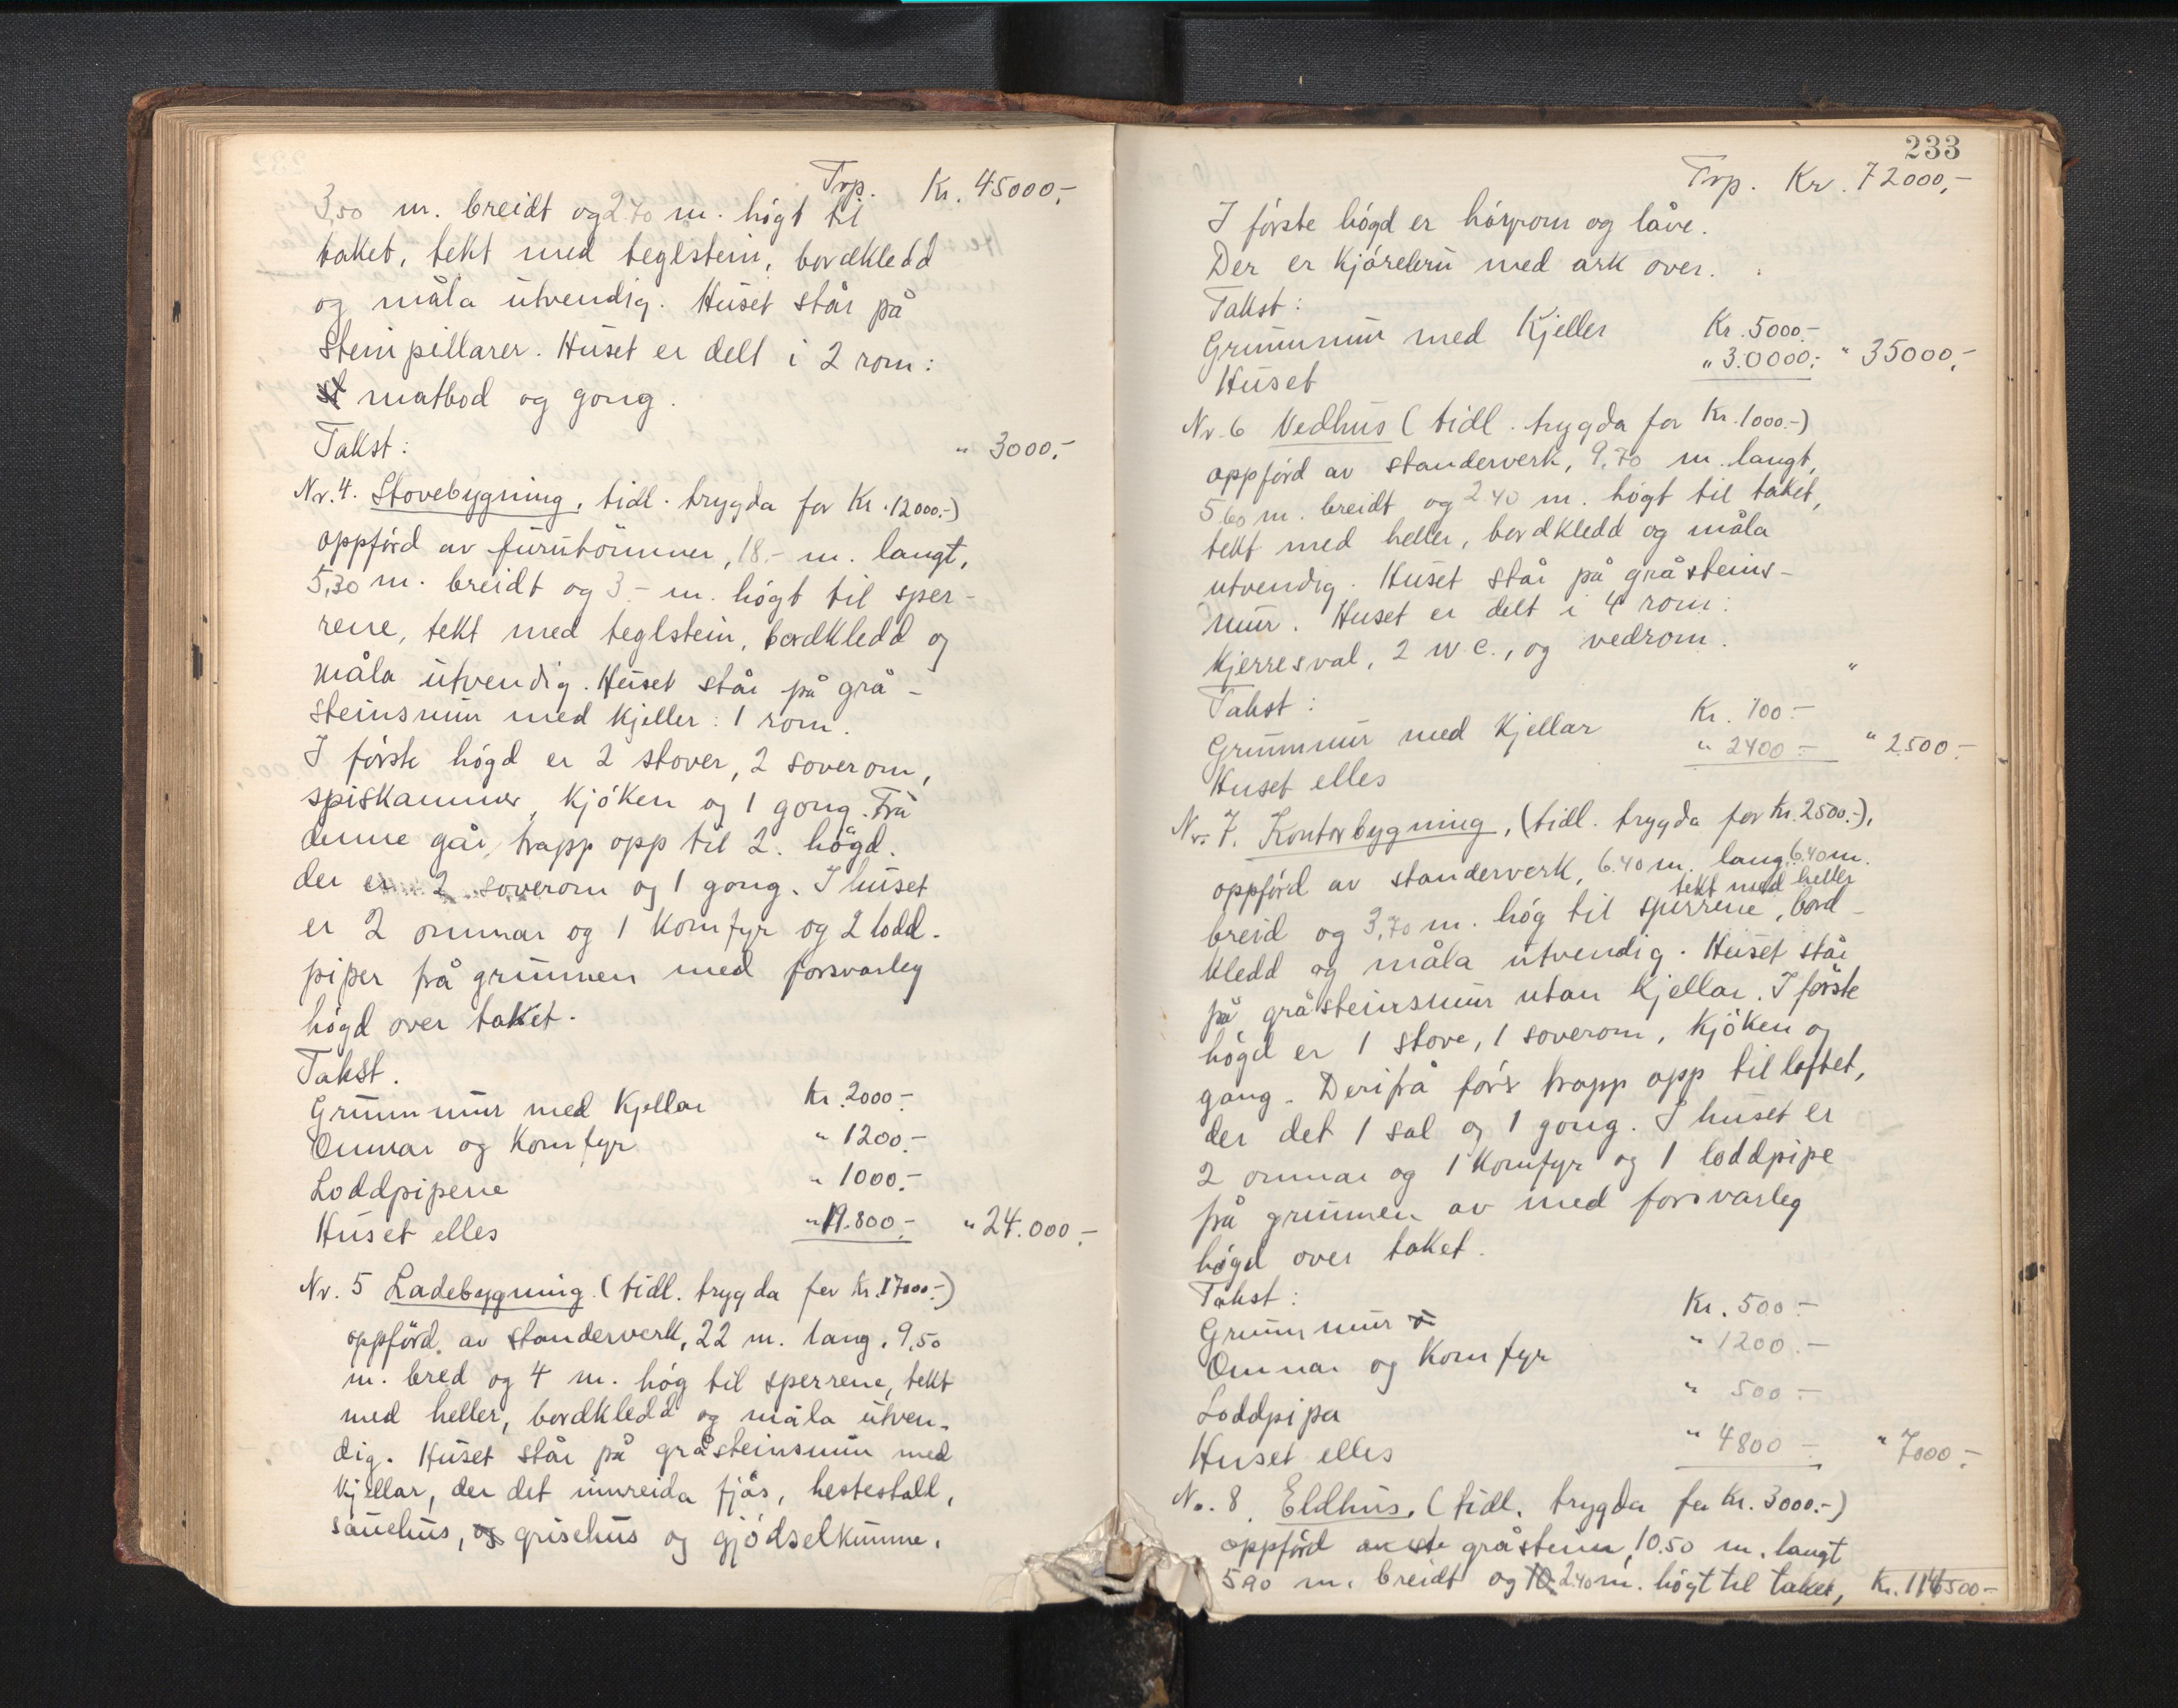 Trp. Kr. 45000,-
3,50 m. breidt og 2.70 m. högt til
taket, tekt med teglstein, bordkledd
og måla utvendig. Huset står på
Steinpillarer. Huset er delt i 2 rom:
matbod og gong.
Takst: " 3000,-
Nr. 4. Stovebygning, tidl. trygda for Kr. 12000.-)
oppförd av furutömmer, 18.- m. langt,
5,30 m. breidt og 3.- m. högt til sper-
rene, tekt med teglstein, bordkledd og
måla utvendig. Huset står på grå-
steinsmur med kjeller: 1 rom.
I förste högd er 2 stover, 2 soverom,
spiskammer, kjöken og 1 gong. Frå
denne går trapp opp til 2. högd.
der er 2 soverom og 1 gong. I huset
er 2 omnar og 1 Komfyr og 2 lodd-
piper frå grunnen med forsvarleg
högd over taket.
Takst.
Grunnmur med Kjellar Kr. 2000.-
Omnar og Komfyr " 1200.-
Loddpipene " 1000.-
Huset elles " 19.800.- " 24.000.-
Nr. 5 Ladebygning (tidl. trygda for Kr. 17000.-)
oppförd av standerverk, 22 m. lang, 9,50
m. bred og 4 m. hög til sperrene, tekt
med heller, bordkledd og måla utven-
dig. Huset står på gråsteinsmur med
kjellar, der det innreida fjös, hestestall,
sauehus, og grisehus og gjödselkumme.
233
Trp. Kr. 72000,-
I förste högd er höyrom og låve.
Der er Kjörebru med ark over.
Takst:
Grunnmur med Kjeller Kr. 5000.-
Huset " 30000.- " 35000,-
Nr. 6 Vedhus (tidl. trygda for Kr. 1000.-)
oppförd av standerverk, 9,70 m. langt,
5,60 m. breidt og 2.40 m. högt til taket,
tekt med heller, bordkledd og måla
utvendig. Huset står på gråsteins-
mur. Huset er delt i 4 rom:
Kjerresval, 2 w.c., og vedrom.
"
Takst:
Grunnmur med Kjellar Kr. 100.-
Huset elles " 2400.- " 2500.-
Nr. 7. Kontorbygning, (tidl. trygda for Kr. 2500.-),
oppförd av standerverk, 6.40 m. lang, 6.40 m.
tekt med heller
breid og 3,70 m. hög til sperrene, bord-
kledd og måla utvendig. Huset står
på gråsteinsmur utan kjellar. I förste
högd er 1 stove, 1 soverom, kjöken og
gang. Derifrå förer trapp opp til loftet,
der det 1 sal og 1 gong. I huset er
2 omnar og 1 komfyr og 1 loddpipe
frå grunnen av med forsvarleg
högd over taket.
Takst:
Grunnmur Kr. 500.-
Omnar og Komfyr " 1200.-
Loddpipa " 500.-
Huset elles " 4800.- " 7000.-
No. 8. Eldhus. (tidl. trygda for Kr. 3000.-)
oppförd av gråstein, 10.50 m. langt
5.90 m. breidt og 2.40 m. högt til taket, Kr. 116500-